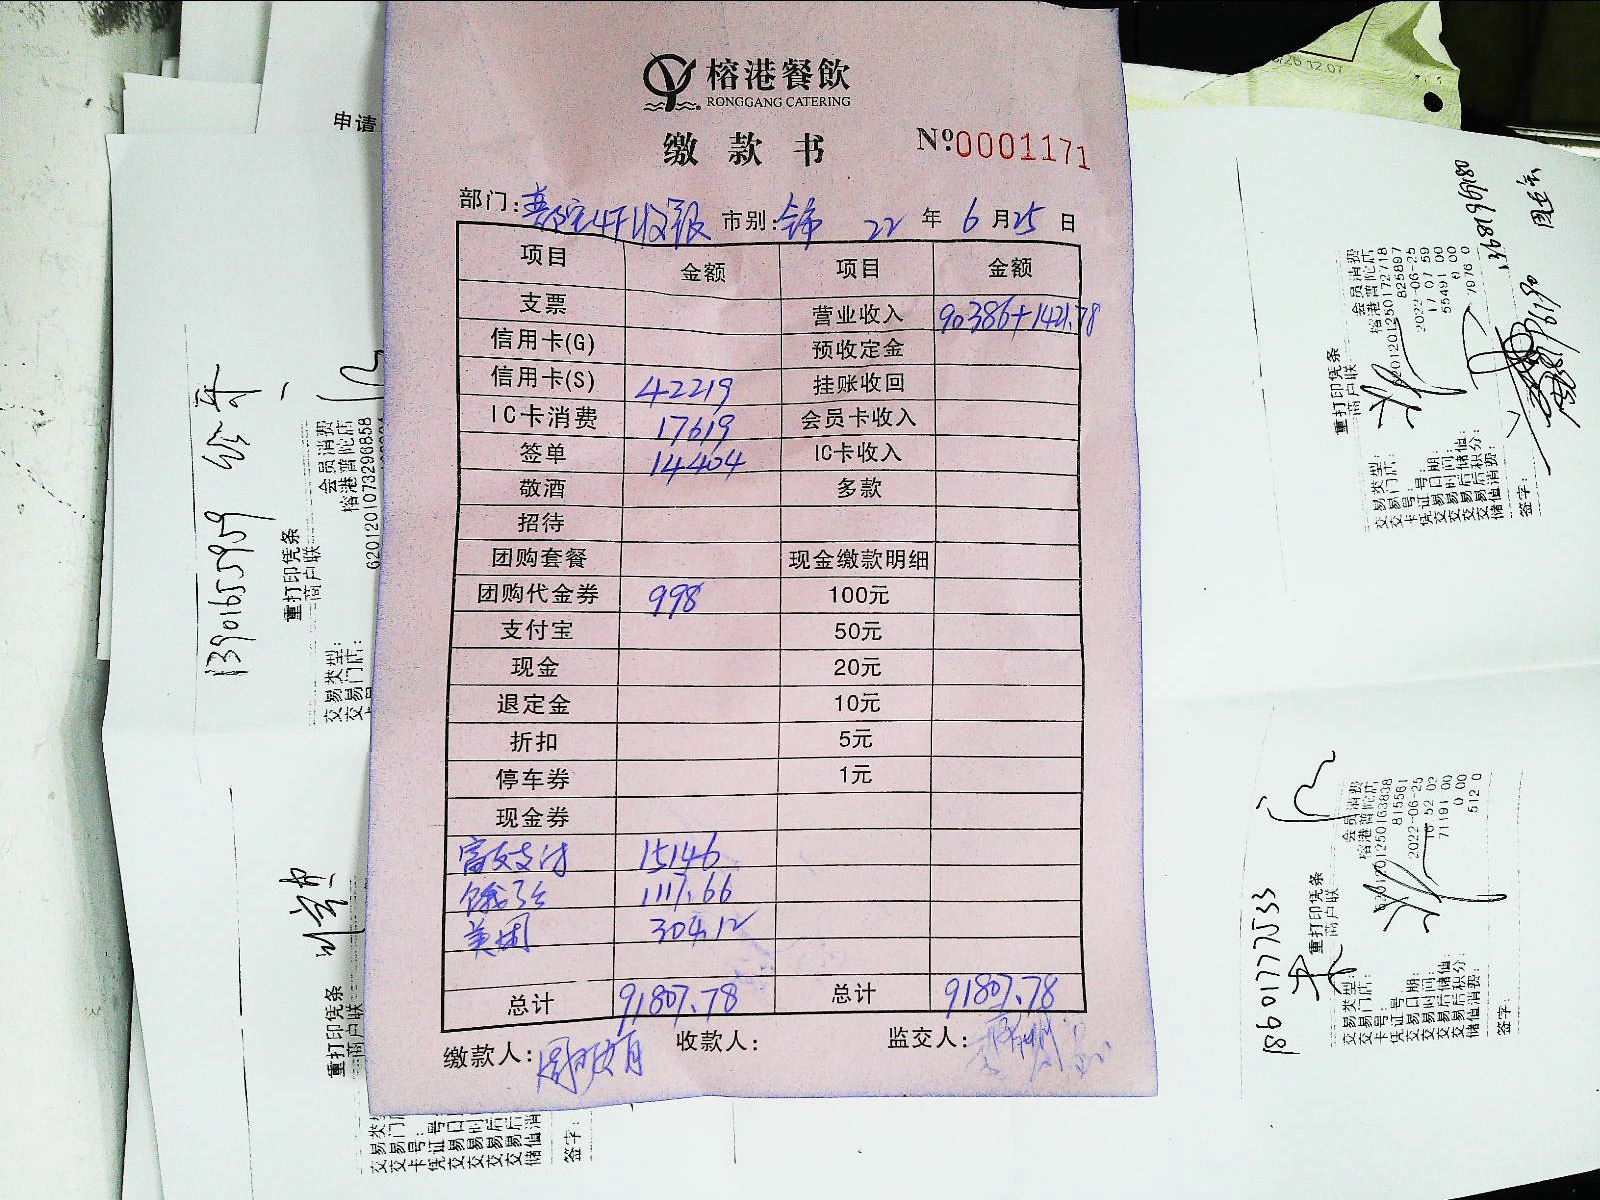 榕港餐飲
RONGGANG CATERING
缴款书 Nº0001171
部门: 4F收银 市别: 全市 22 年 6 月 25 日
项目 金额 项目 金额
支票 营业收入 90386+1421.78
信用卡(G) 预收定金
信用卡(S) 42219 挂账收回
IC卡消费 17619 会员卡收入
签单 14404 IC卡收入
敬酒 多款
招待
团购套餐 现金缴款明细
团购代金券 998 100元
支付宝 50元
现金 20元
退定金 10元
折扣 5元
停车券 1元
现金券
富友支付 15146
饿了么 1117.66
美团 304.12
总计 91807.78 总计 91807.78
缴款人: 收款人: 监交人:
申请
13901655959
重打印凭条
商户联
会员消费
榕港普陀店
6201201073296858
交易类型:
交易门店:
重打印凭条
商户联
签字:
重打印凭条
商户联
交易类型: 会员消费
交易门店: 榕港普陀店
卡号:
凭证号: 825897
交易日期: 2022-06-25
交易时间: 17 07 59
交易后储值: 55491 00
交易后积分: 0 00
储值消费: 7976 0
签字:
18601777533
重打印凭条
商户联
交易类型: 会员消费
交易门店: 榕港普陀店
卡号:
凭证号 815561
交易日期: 2022-06-25
交易时间: 16 52 02
交易后储值: 71191 00
交易后积分: 0 00
储值消费: 512 0
签字: